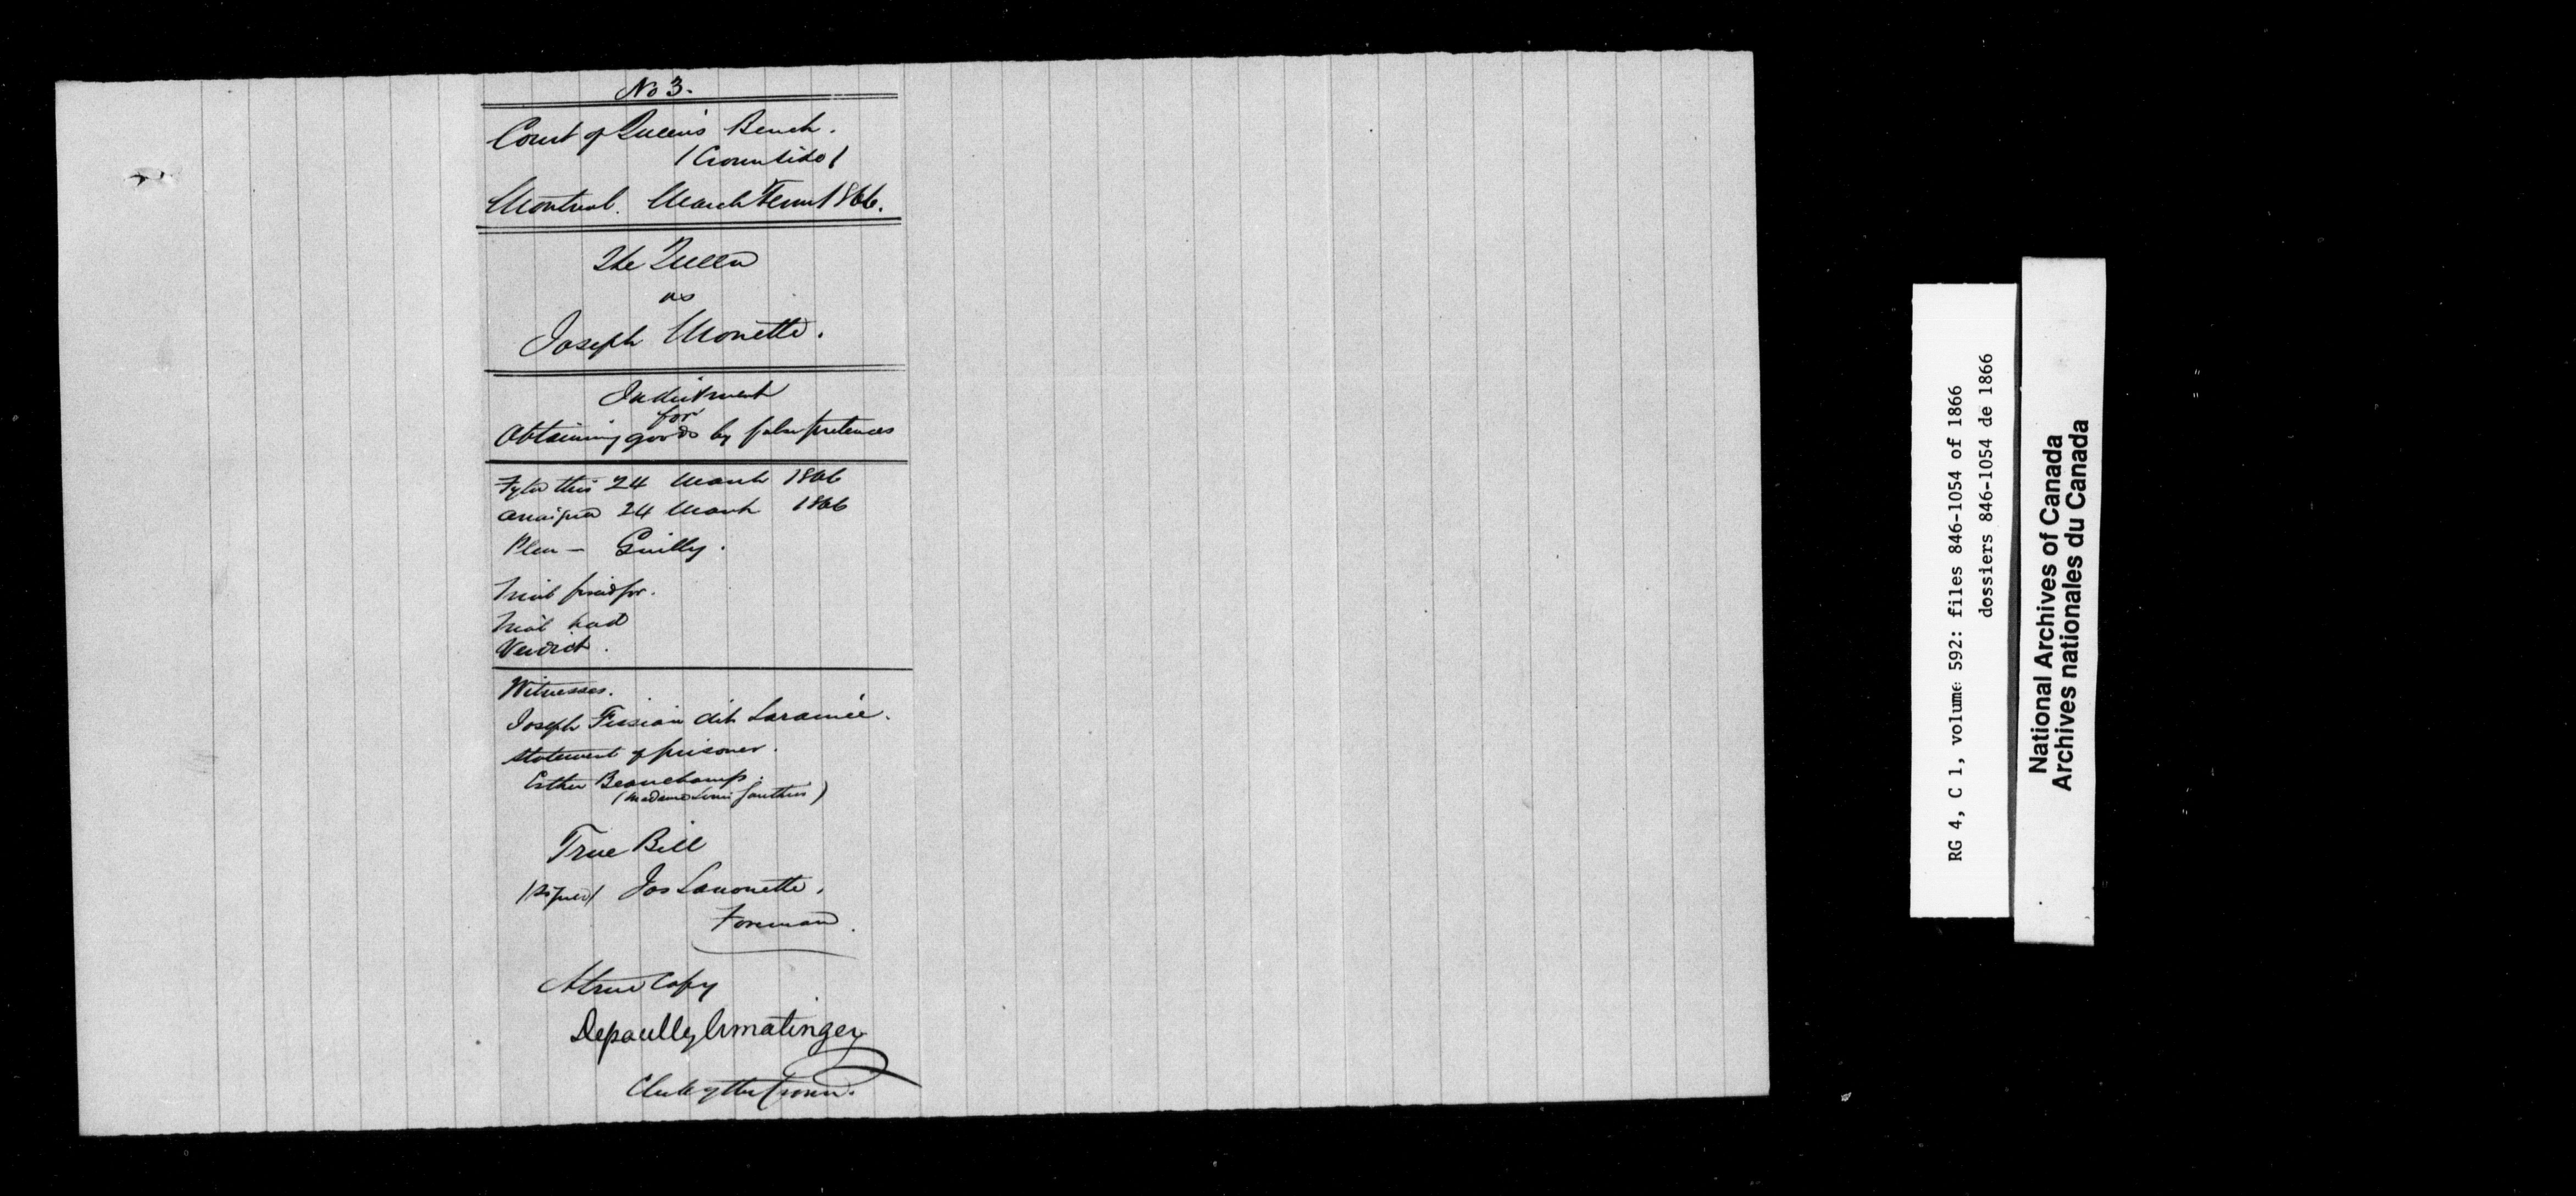 No 3.
Court of Queen's Bench.
/Crown side/
Montreal. March Term 1866.
The Queen
vs
Joseph Monette.
Indictment
for
Obtaining goods by false pretences
Fyled this 24 March 1866
Arraigned 24 March 1866
Plea — Guilty.
Trial fixed for.
Trial had
Verdict.
Witnesses.
Joseph dit Laramée.
Statement of prisoner.
Esther Beauchamp.
(Madame Louis Gauthier)
True Bill
/signed/ Jos Lamonette,
Foreman.
A true Copy
Clerk of the Crown.
RG 4, C 1, volume 592: files 846-1054 of 1866
dossiers 846-1054 de 1866
National Archives of Canada
Archives nationales du Canada